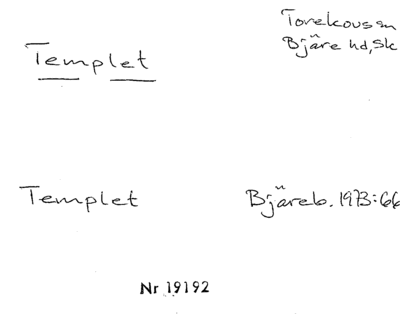 Templet
Torekovs sn
Bjäre hd, Sk
Templet
Bjäreb. 1973:66
Nr 19192